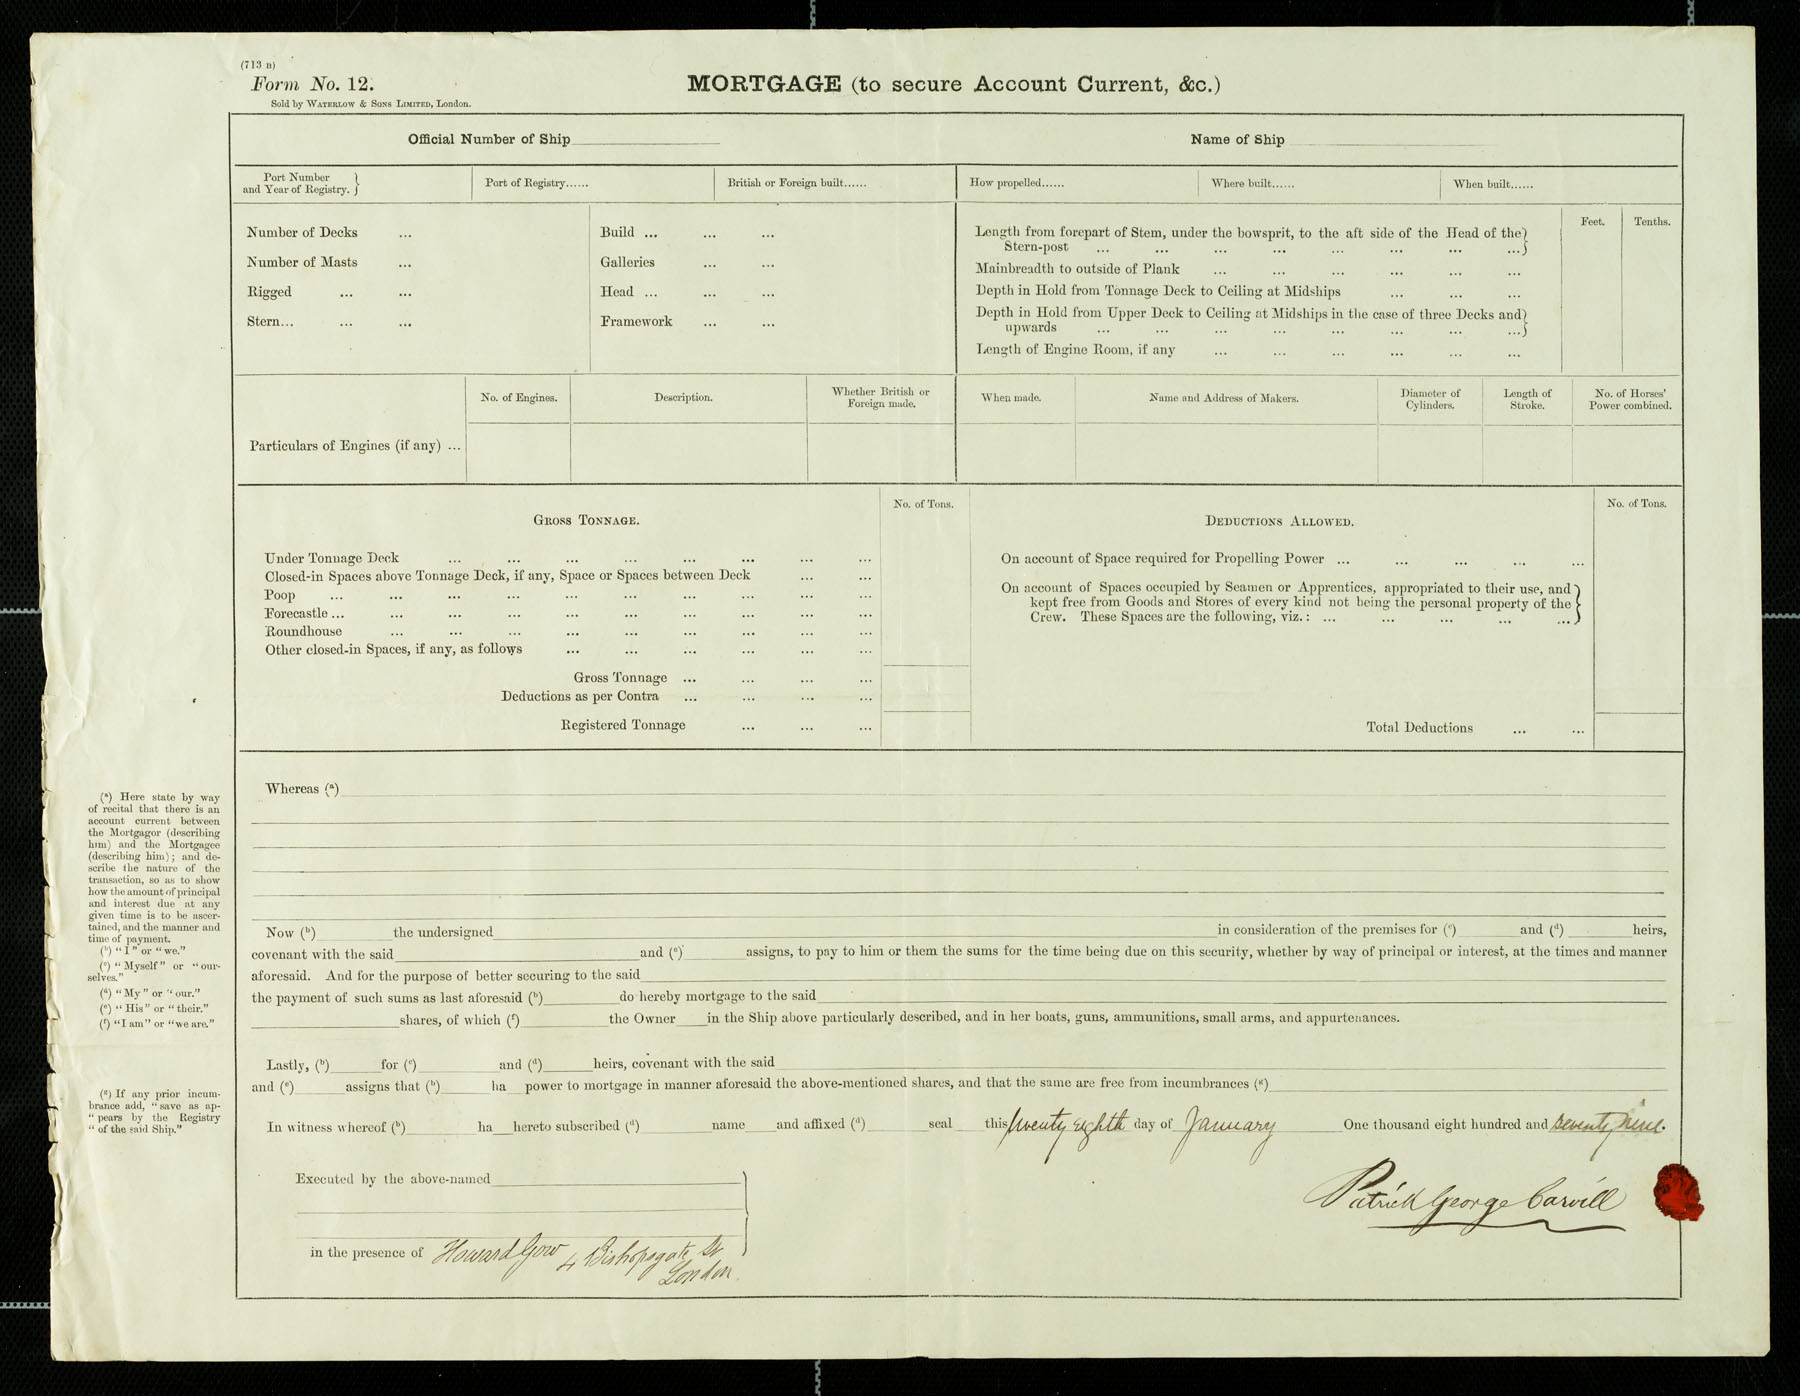 (713 B)
Form No. 12.
Sold by WATERLOW & SONS LIMITED, London.
MORTGAGE (to secure Account Current, &c.)
Official Number of Ship
Name of Ship
Port Number
and Year of Registry. }
Port of Registry......
British or Foreign built......
How propelled......
Where built......
When built......
Number of Decks ...
Number of Masts ...
Rigged ... ...
Stern... ... ...
Build ... ... ...
Galleries ... ...
Head ... ... ...
Framework ... ...
Feet.
Tenths.
Length from forepart of Stem, under the bowsprit, to the aft side of the Head of the }
Stern-post ... ... ... ... ... ... , ... }
Mainbreadth to outside of Plank ... ... ... ... ... ...
Depth in Hold from Tonnage Deck to Ceiling at Midships ... ... ...
Depth in Hold from Upper Deck to Ceiling at Midships in the case of three Decks and }
upwards ... ... ... ... ... ... ... ... }
Length of Engine Room, if any ... ... ... ... ... ...
No. of Engines.
Description.
Whether British or
Foreign made.
When made.
Name and Address of Makers.
Diameter of
Cylinders.
Length of
Stroke.
No. of Horses'
Power combined.
Particulars of Engines (if any) ...
GROSS TONNAGE.
No. of Tons.
Under Tonnage Deck ... ... ... ... ... ... ... ...
Closed-in Spaces above Tonnage Deck, if any, Space or Spaces between Deck ... ...
Poop ... ... ... ... ... ... ... ... ... ...
Forecastle ... ... ... ... ... ... ... ... ... ...
Roundhouse ... ... ... ... ... ... ... ... ...
Other closed-in Spaces, if any, as follows ... ... ... ... ... ...
Gross Tonnage ... ... ... ...
Deductions as per Contra ... ... ... ...
Registered Tonnage ... ... ...
DEDUCTIONS ALLOWED.
No. of Tons.
On account of Space required for Propelling Power ... ... ... ... ...
On account of Spaces occupied by Seamen or Apprentices, appropriated to their use, and }
kept free from Goods and Stores of every kind not being the personal property of the }
Crew. These Spaces are the following, viz.: ... ... ... ... ... }
Total Deductions ... ...
(a) Here state by way
of recital that there is an
account current between
the Mortgagor (describing
him) and the Mortgagee
(describing him); and de-
scribe the nature of the
transaction, so as to show
how the amount of principal
and interest due at any
given time is to be ascer-
tained, and the manner and
time of payment.
(b) "I" or "we."
(c) "Myself" or "our-
selves."
(d) "My" or "our."
(e) "His" or "their."
(f) "I am" or "we are."
(g) If any prior incum-
brance add, "save as ap-
"pears by the Registry
"of the said Ship."
Whereas (a)
Now (b) the undersigned in consideration of the premises for (c) and (d) heirs,
covenant with the said and (e) assigns, to pay to him or them the sums for the time being due on this security, whether by way of principal or interest, at the times and manner
aforesaid. And for the purpose of better securing to the said
the payment of such sums as last aforesaid (b) do hereby mortgage to the said
shares, of which (f) the Owner in the Ship above particularly described, and in her boats, guns, ammunitions, small arms, and appurtenances.
Lastly, (b) for (c) and (d) heirs, covenant with the said
and (e) assigns that (b) ha power to mortgage in manner aforesaid the above-mentioned shares, and that the same are free from incumbrances (g)
In witness whereof (b) ha hereto subscribed (d) name and affixed (d) seal this twenty eighth day of January One thousand eight hundred and seventy nine.
Patrick George Carvill
Executed by the above-named
in the presence of Howard Gow 4 Bishopsgate St
London